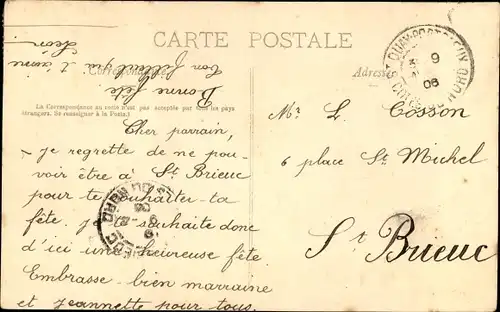 CARTE POSTALE
Correspondance
Adresse
La Correspondance au recto n'est pas acceptée par tous les pays
étrangers. (Se renseigner à la Poste.)
Cher parrain,
je regrette de ne pou-
voir être à St Brieuc
pour te souhaiter ta
fête. je te souhaite donc
d'ici une heureuse fête
Embrasse bien marraine
et jeannette pour tous.
Bonne fête
ton filleul qui t'aime
Léon
Mr L. Cosson
6 place St Michel
St Brieuc
9
06
COTES DU NORD